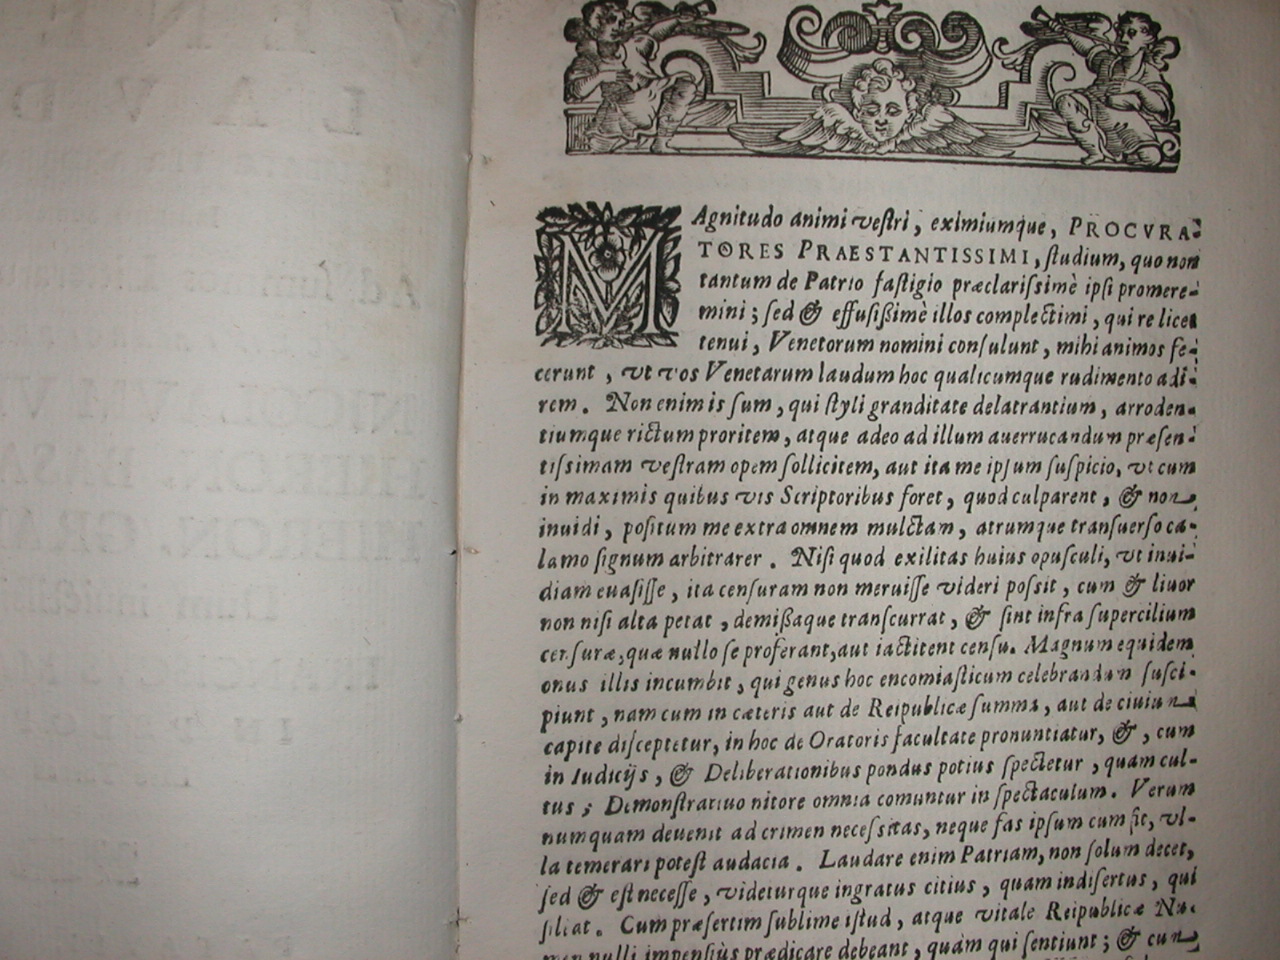 MAgnitudo animi veſtri, eximiumque, PROCVRA-
TORES PRAESTANTISSIMI, ſtudium, quo non
tantum de Patrio faſtigio præclariſsimè ipſi promere-
mini; ſed & effuſißimè illos complectimi, qui re licet
tenui, Venetorum nomini conſulunt, mihi animos fe-
cerunt, vt vos Venetarum laudum hoc qualicumque rudimento adi-
rem. Non enim is ſum, qui ſtyli granditate delatrantium, arroden-
tiumque rictum proritem, atque adeo ad illum auerrucandum præſen-
tiſsimam veſtram opem ſollicitem, aut ita me ipſum ſuſpicio, vt cum
in maximis quibus vis Scriptoribus foret, quod culparent, & non
inuidi, poſitum me extra omnem mulctam, atrumque tranſuerſo ca-
lamo ſignum arbitrarer. Niſi quod exilitas huius opuſculi, vt inui-
diam euaſiſſe, ita cenſuram non meruiſſe videri poſsit, cum & liuor
non niſi alta petat, demißaque tranſcurrat, & ſint infra ſupercilium
cenſuræ, quæ nullo ſe proferant, aut iactitent cenſu. Magnum equidem
onus illis incumbit, qui genus hoc encomiaſticum celebrandum ſuſci-
piunt, nam cum in cæteris aut de Reipublicæ ſumma, aut de ciuium
capite diſceptetur, in hoc de Oratoris facultate pronuntiatur, &, cum
in Iudicijs, & Deliberationibus pondus potius ſpectetur, quam cul-
tus; Demonſtratiuo nitore omnia comuntur in ſpectaculum. Verum
numquam deuenit ad crimen neceſsitas, neque fas ipſum cum ſit, vl-
la temerari poteſt audacia. Laudare enim Patriam, non ſolum decet,
ſed & eſt neceſſe, videturque ingratus citius, quam indiſertus, qui
ſileat. Cum præſertim ſublime iſtud, atque vitale Reipublicæ Nu-
men nulli impenſiùs prædicare debeant, quàm qui ſentiunt; & cum